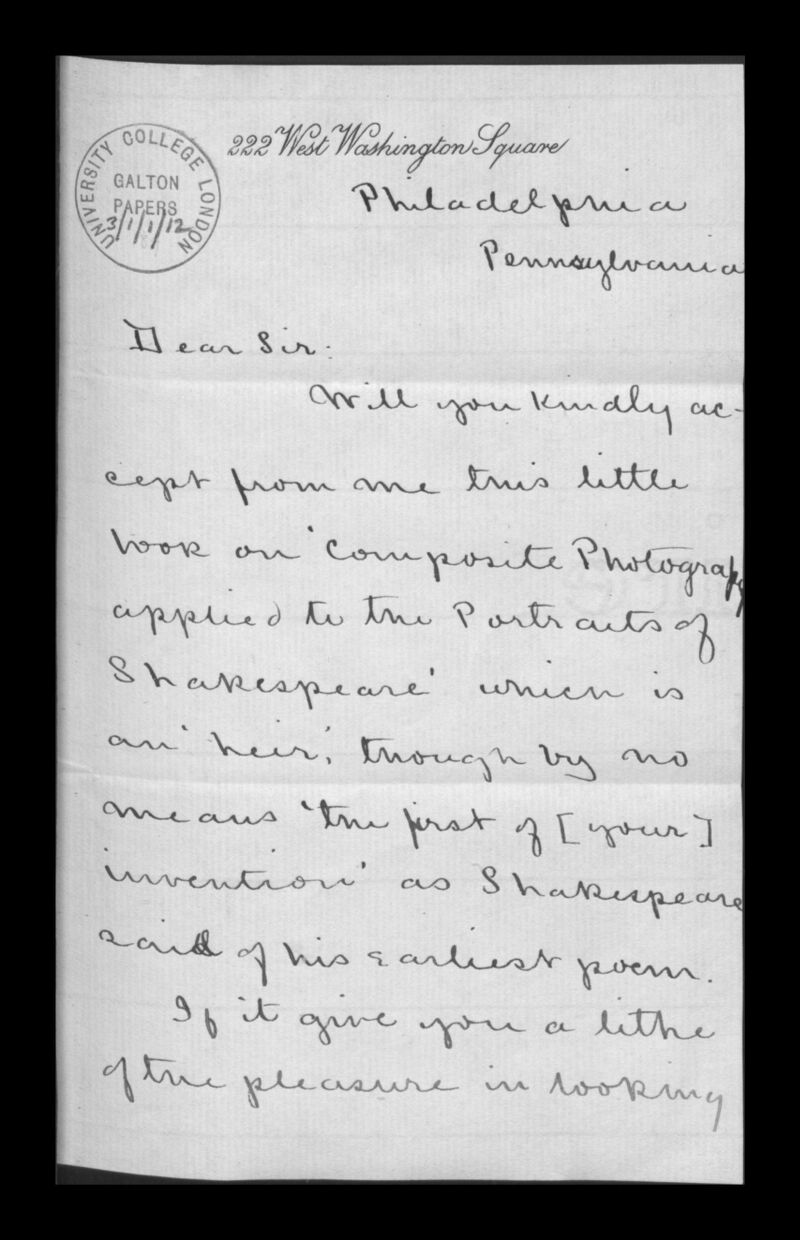 UNIVERSITY COLLEGE LONDON
GALTON
PAPERS
3/1/1/12
222 West Washington Square
Philadelphia
Pennsylvania
Dear Sir:
Will you kindly ac-
cept from me this little
book on 'Composite Photography
applied to the Portraits of
Shakespeare' which is
an 'heir,' though by no
means 'the first of [your]
invention' as Shakespeare
said of his earliest poem.
If it give you a tithe
of the pleasure in looking